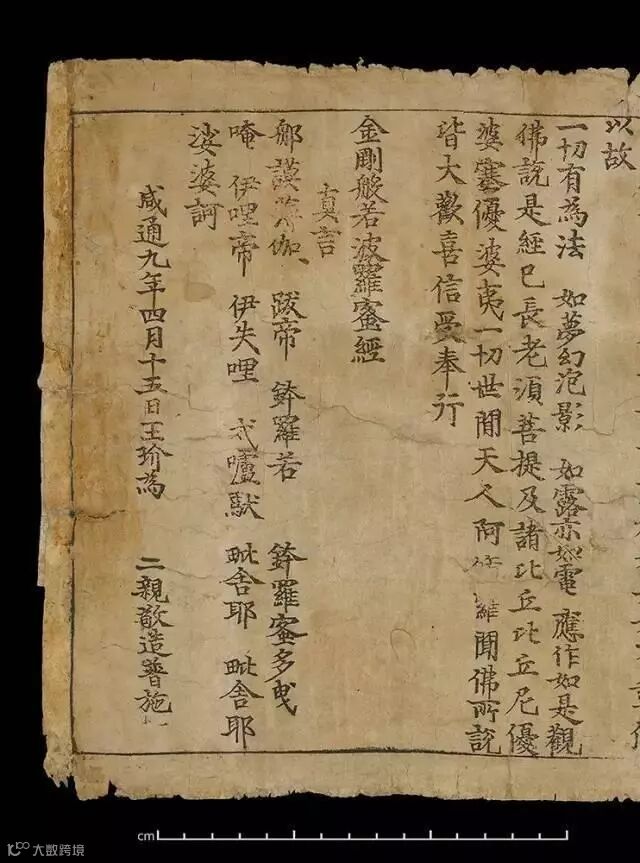 以故
一切有為法 如夢幻泡影 如露亦如電 應作如是觀
佛說是經已長老須菩提及諸比丘比丘尼優
婆塞優婆夷一切世間天人阿 羅聞佛所說
皆大歡喜信受奉行
金剛般若波羅蜜經
真言
那謨 伽 跋帝 鉢羅若 鉢羅蜜多曳
唵 伊哩帝 伊失哩 戍嚧馱 毗舍耶 毗舍耶
娑婆訶
咸通九年四月十五日王玠為 二親敬造普施
cm
大数跨境